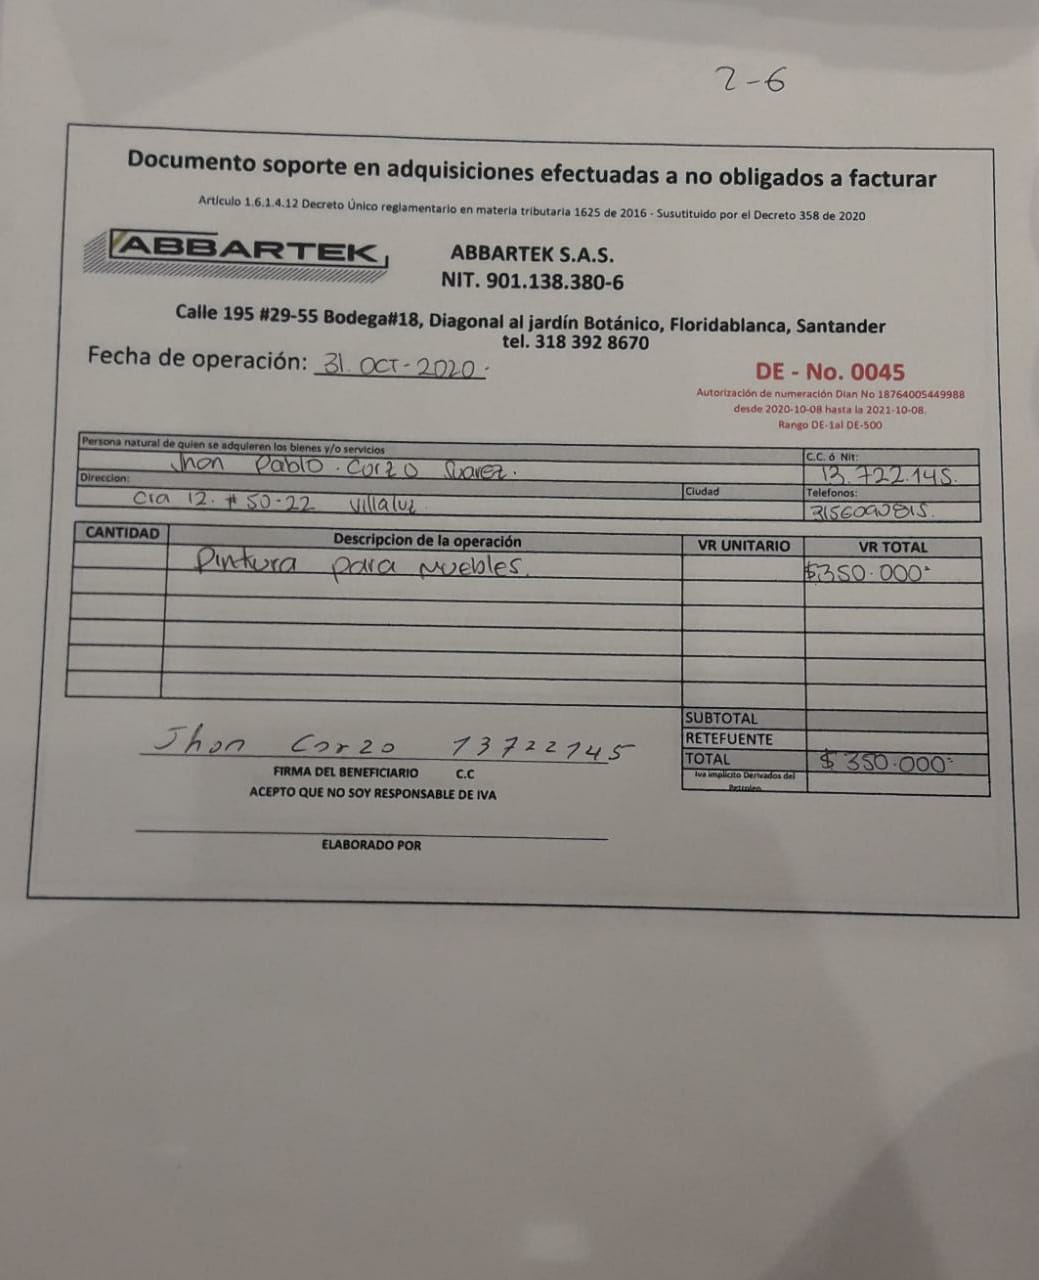 2-6
Documento soporte en adquisiciones efectuadas a no obligados a facturar
Artículo 1.6.1.4.12 Decreto Único reglamentario en materia tributaria 1625 de 2016 - Susutituido por el Decreto 358 de 2020
ABBARTEK
ABBARTEK S.A.S.
NIT. 901.138.380-6
Calle 195 #29-55 Bodega#18, Diagonal al jardín Botánico, Floridablanca, Santander
tel. 318 392 8670
Fecha de operación: 31. OCT-2020.
DE - No. 0045
Autorización de numeración Dian No 18764005449988
desde 2020-10-08 hasta la 2021-10-08.
Rango DE-1al DE-500
Persona natural de quien se adquieren los bienes y/o servicios
C.C. ó Nit:
Jhon Pablo. Corzo Suarez.
13.722.145.
Direccion:
Ciudad
Telefonos:
Cra 12. # 50-22 Villaluz.
CANTIDAD Descripcion de la operación VR UNITARIO VR TOTAL
Pintura para Muebles. $350.000
SUBTOTAL
RETEFUENTE
TOTAL $ 350.000
Iva implicito Derivados del
Petroleo
Jhon Corzo 13722145
FIRMA DEL BENEFICIARIO C.C
ACEPTO QUE NO SOY RESPONSABLE DE IVA
ELABORADO POR